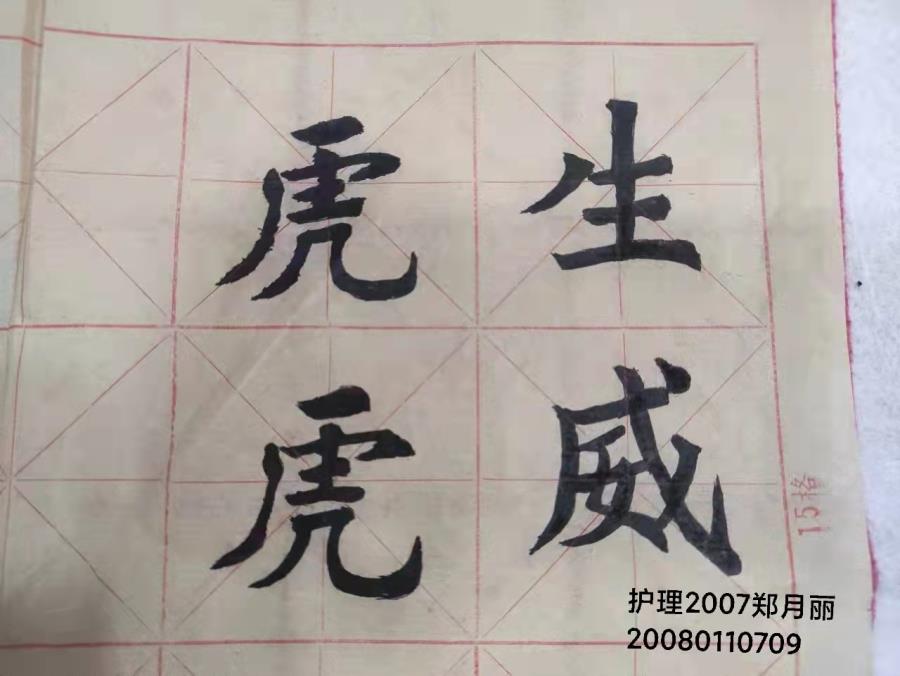 虎 生
虎 威
15格
护理2007郑月丽
20080110709